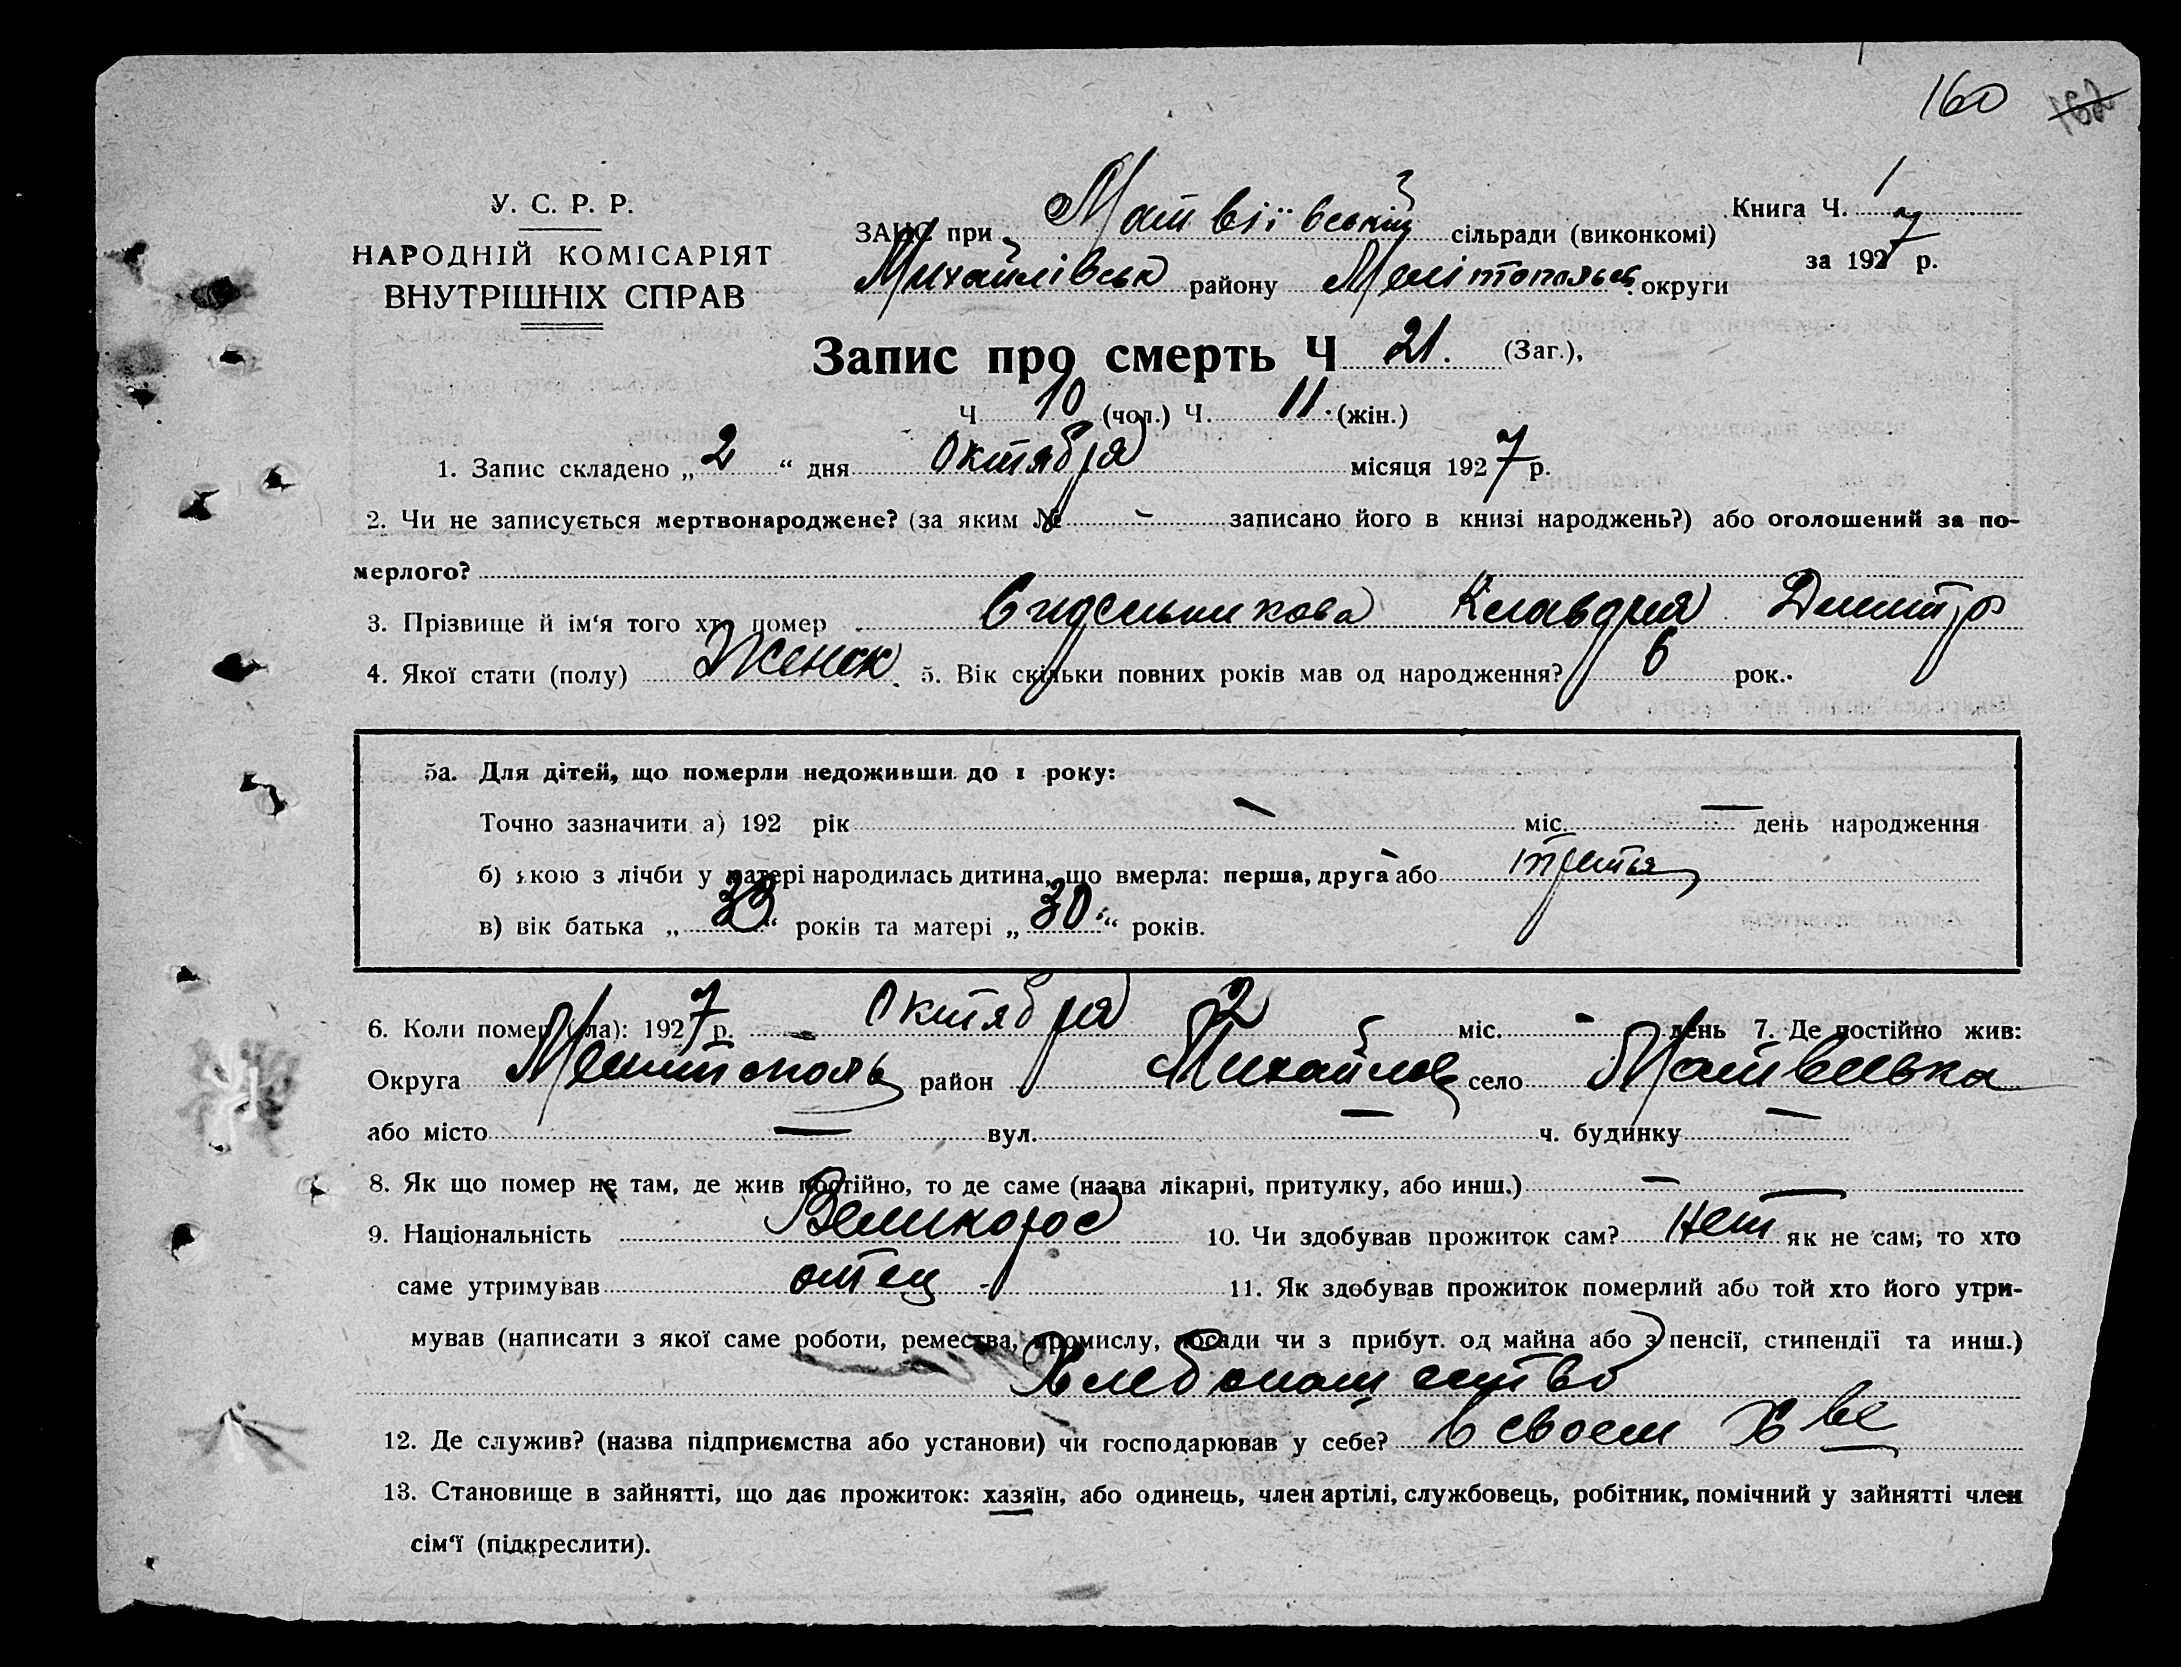 160 162
У. С. Р. Р.
НАРОДНІЙ КОМІСАРІЯТ
ВНУТРІШНІХ СПРАВ
ЗАГС при Матвіївській сільради (виконкомі)
Михайлівськ району Мелітопольськ. округи
Книга Ч. 1
за 1927 р.
Запис про смерть Ч 21. (Заг.),
Ч 10 (чол.) Ч. 11. (жін.)
1. Запис складено „ 2 “ дня Октября місяця 1927 р.
2. Чи не записується мертвонароджене? (за яким № - записано його в книзі народжень?) або оголошений за по-
мерлого?
3. Прізвище й ім‘я того хто помер Клавдия Дмитр
4. Якої стати (полу) Женск. 5. Вік скільки повних років мав од народження? 6 рок.
5а. Для дітей, що померли недоживши до 1 року:
Точно зазначити а) 192 рік — міс. — день народження
б) якою з лічби у матері народилась дитина, що вмерла: перша, друга або третья
в) вік батька „ 33 “ років та матері „ 30 “ років.
6. Коли помер (ла): 1927 р. Октября 2 міс. - день 7. Де постійно жив:
Округа Мелитополь район Михайлов село Матвеевка
або місто — вул. — ч. будинку —
8. Як що помер не там, де жив постійно, то де саме (назва лікарні, притулку, або инш.) —
9. Національність Великорос 10. Чи здобував прожиток сам? Нет як не сам, то хто
саме утримував отец - 11. Як здобував прожиток померлий або той хто його утри-
мував (написати з якої саме роботи, ремества, промислу, посади чи з прибут. од майна або з пенсії, стипендії та инш.)
Хлебопашество
12. Де служив? (назва підприємства або установи) чи господарював у себе? в своем Х ве
13. Становище в зайнятті, що дає прожиток: хазяїн, або одинець, член артілі, службовець, робітник, помічний у зайнятті член
сім‘ї (підкреслити).